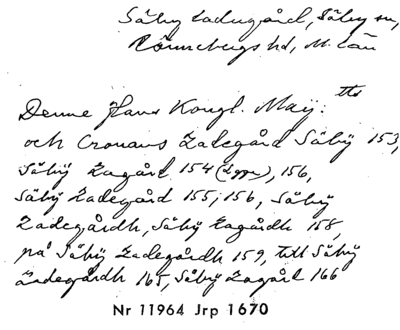 Säby Ladugård, Säby sn,
Rönnebergs hd, M. län
Denne Hans Kongl. Maÿ: tts
och Cronans Ladegård Säbÿ 153,
Säbÿ Lagård 154 (Lggr), 156,
Säbÿ Ladegård 155; 156, Säbÿ
Ladegårdh, Säbÿ Lagårdh 158,
på Säbÿ Ladegårdh 159, till Säbÿ
ladegårdh 165, Säbÿ Lagård 166
Nr 11964 Jrp 1670